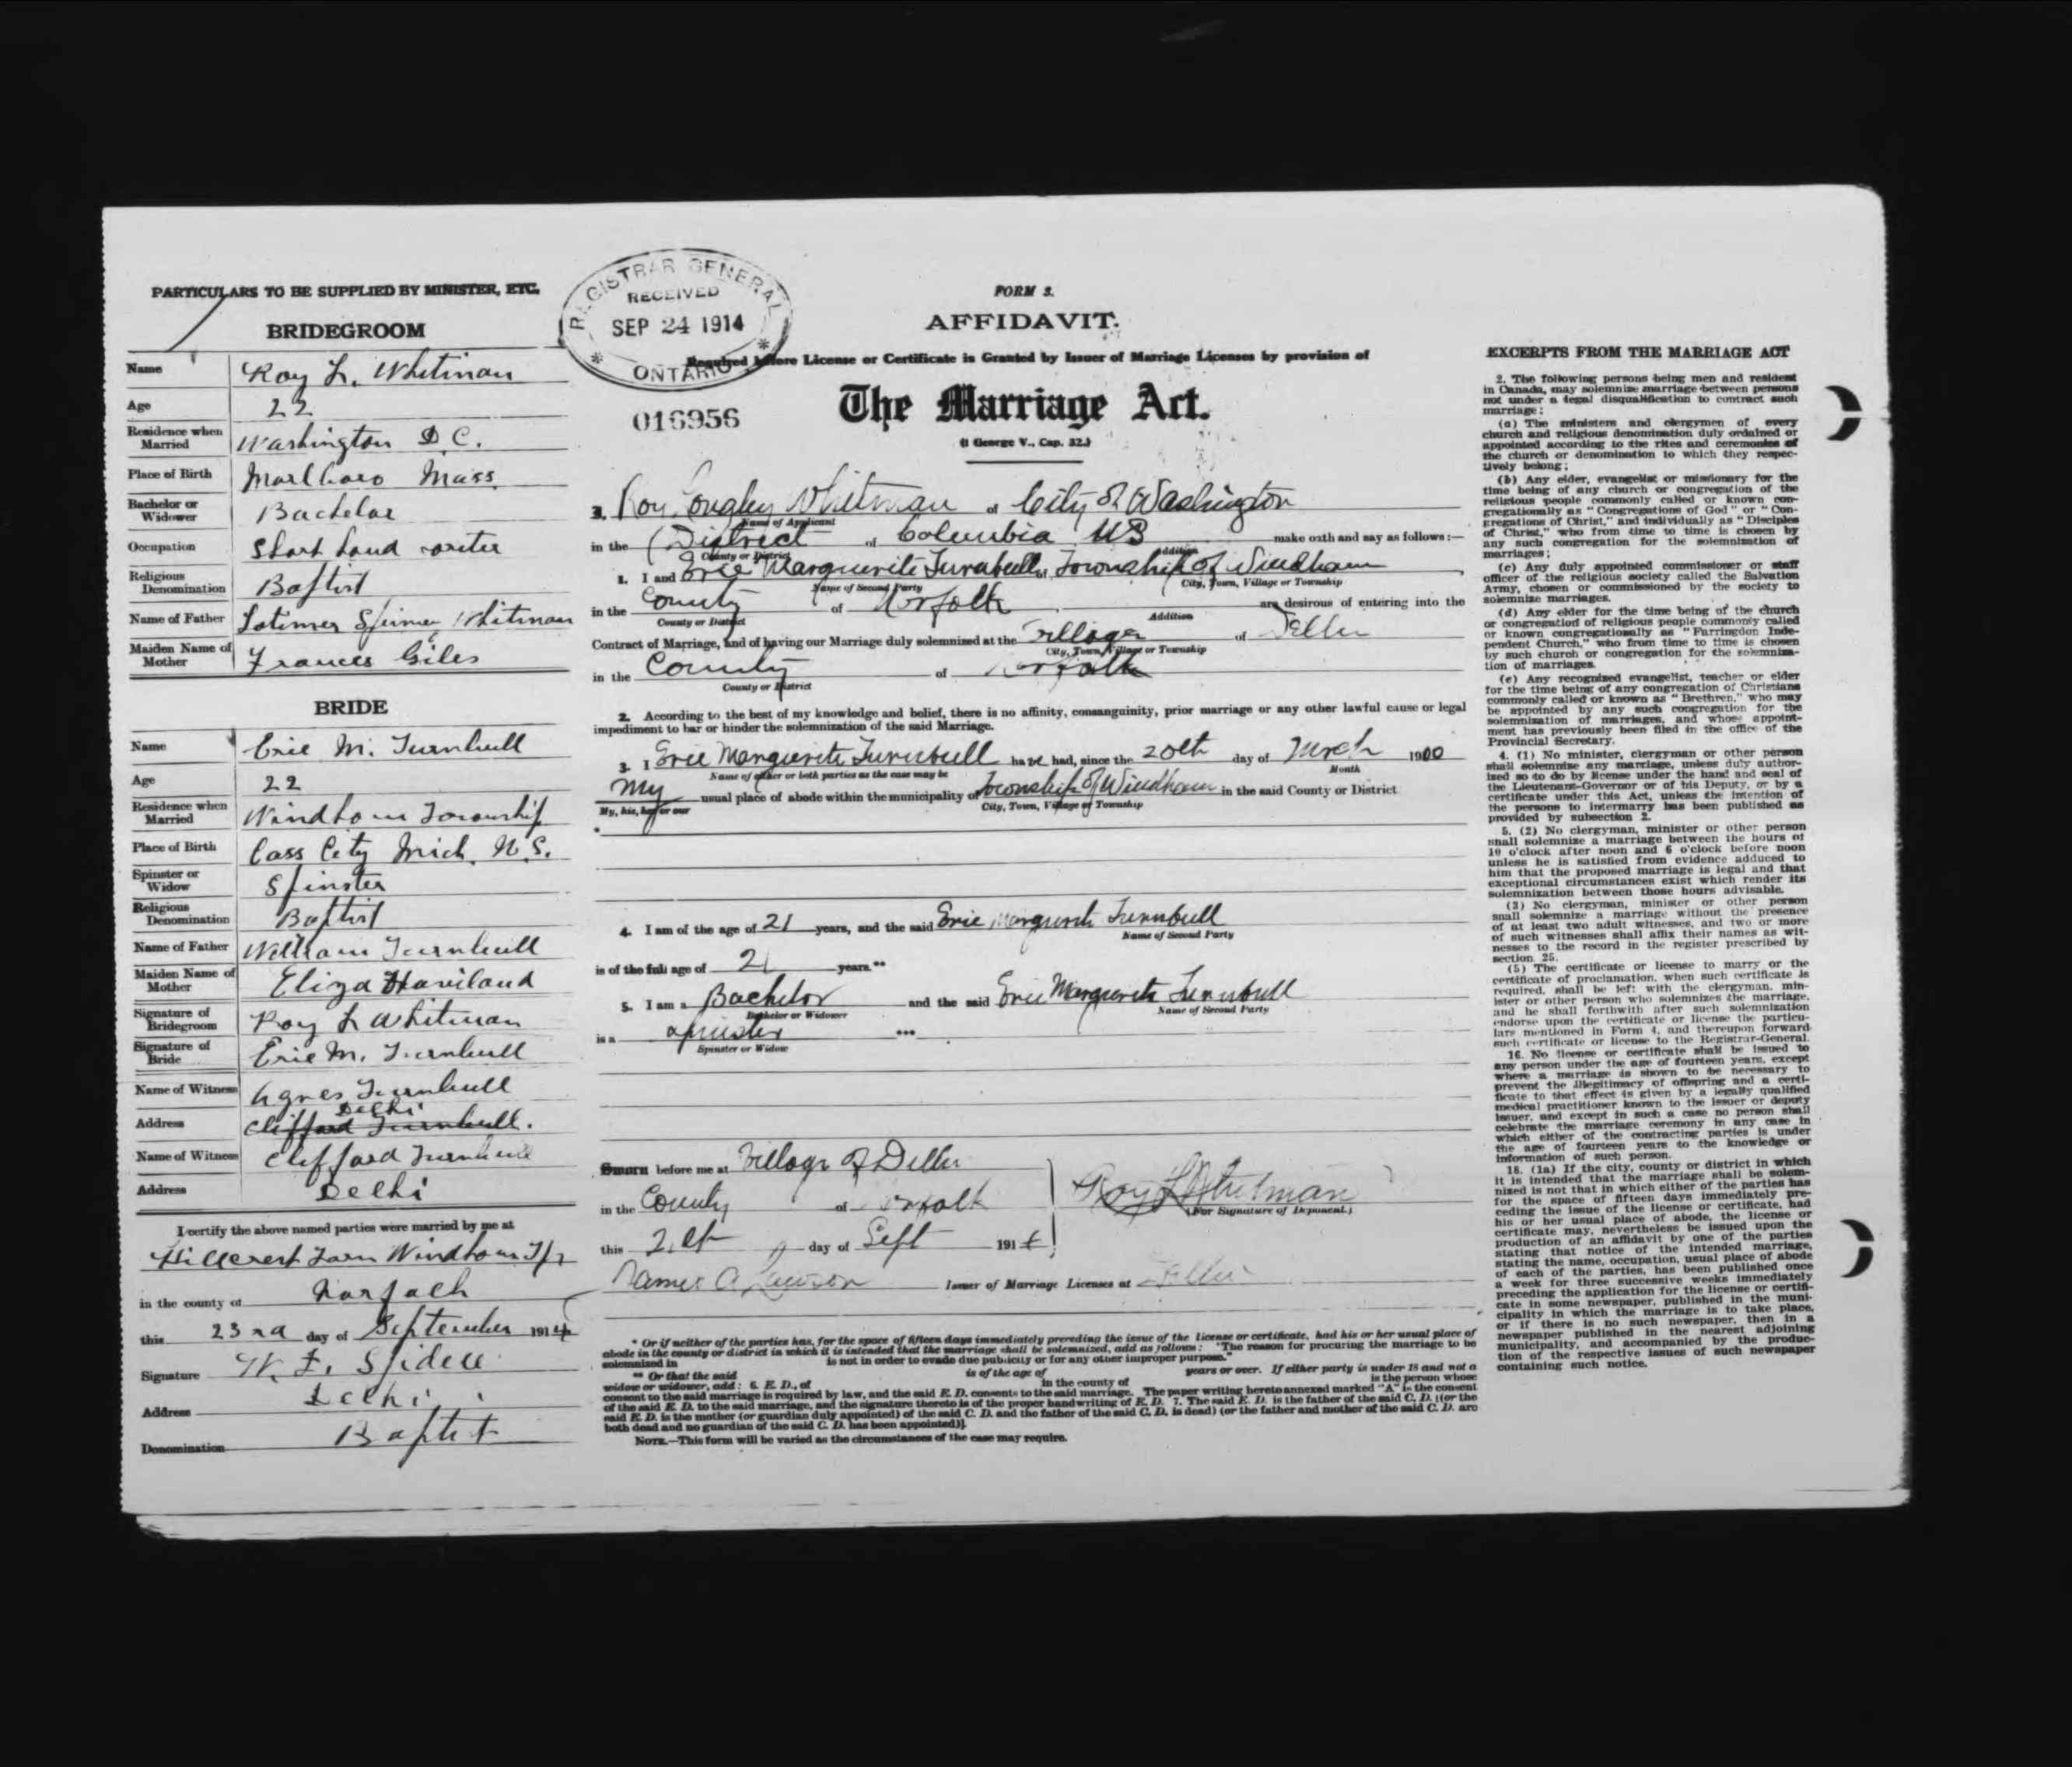 PARTICULARS TO BE SUPPLIED BY MINISTER, ETC.
BRIDEGROOM
Name Roy L. Whitman
Age 22
Residence when Married Washington D C.
Place of Birth Marlboro Mass.
Bachelor or Widower Bachelor
Occupation Short hand writer
Religious Denomination Baptist
Name of Father Latimer Whitman
Maiden Name of Mother Frances Giles
BRIDE
Name Erie M. Turnbull
Age 22
Residence when Married Windham Township
Place of Birth Cass City Mich. U.S.
Spinster or Widow Spinster
Religious Denomination Baptist
Name of Father William Turnbull
Maiden Name of Mother Eliza Haviland
Signature of Bridegroom Roy L Whitman
Signature of Bride Erie M. Turnbull
Name of Witness Agnes Turnbull
Delhi
Address Clifford Turnbull.
Name of Witness Clifford Turnbull
Address Delhi
I certify the above named parties were married by me at
Hillcrest Farm Windham
in the county of Norfolk
this 23rd day of September 1914
Signature W. F. Spidell
Address Delhi
Denomination Baptist
REGISTRAR GENERAL
RECEIVED
SEP 24 1914
ONTARIO
016956
FORM 3.
AFFIDAVIT.
Required before License or Certificate is Granted by Issuer of Marriage Licenses by provision of
The Marriage Act.
(1 George V., Cap. 32.)
Roy Longley Whitman of City of Washington
Name of Applicant
in the District of Columbia US make oath and say as follows:—
County or District Addition
1. I and Erie Marguerite Turnbull, Township of Windham
Name of Second Party City, Town, Village or Township
in the County of Norfolk are desirous of entering into the
County or District Addition
Contract of Marriage, and of having our Marriage duly solemnized at the Village of Delhi
City, Town, Village or Township
in the County of Norfolk
County or District
2. According to the best of my knowledge and belief, there is no affinity, consanguinity, prior marriage or any other lawful cause or legal
impediment to bar or hinder the solemnization of the said Marriage.
3. I Erie Marguerite Turnbull have had, since the 20th day of March 1900
Name of either or both parties as the case may be Month
My usual place of abode within the municipality of Township of Windham in the said County or District
My, his, her or our City, Town, Village or Township
*
4. I am of the age of 21 years, and the said Erie Marguerite Turnbull
Name of Second Party
is of the full age of 21 years.**
5. I am a Bachelor and the said Erie Marguerite Turnbull
Bachelor or Widower Name of Second Party
is a spinster ***
Spinster or Widow
Sworn before me at Village of Delhi
in the County of Norfolk
Roy L Whitman
(For Signature of Deponent.)
this 21st day of Sept 1914
James A Lawson Issuer of Marriage Licenses at Delhi
* Or if neither of the parties has, for the space of fifteen days immediately preceding the issue of the license or certificate, had his or her usual place of
abode in the county or district in which it is intended that the marriage shall be solemnized, add as follows: "The reason for procuring the marriage to be
solemnized in is not in order to evade due publicity or for any other improper purpose."
** Or that the said is of the age of years or over. If either party is under 18 and not a
widow or widower, add: 6. E. D., of in the county of is the person whose
consent to the said marriage is required by law, and the said E. D. consents to the said marriage. The paper writing hereto annexed marked "A" is the consent
of the said E. D. to the said marriage, and the signature thereto is of the proper handwriting of E. D. 7. The said E. D. is the father of the said C. D. (or the
said E. D. is the mother (or guardian duly appointed) of the said C. D. and the father of the said C. D. is dead) (or the father and mother of the said C. D. are
both dead and no guardian of the said C. D. has been appointed)].
NOTE.—This form will be varied as the circumstances of the case may require.
EXCERPTS FROM THE MARRIAGE ACT
2. The following persons being men and resident
in Canada, may solemnize marriage between persons
not under a legal disqualification to contract such
marriage:
(a) The ministers and clergymen of every
church and religious denomination duly ordained or
appointed according to the rites and ceremonies of
the church or denomination to which they respec-
tively belong;
(b) Any elder, evangelist or missionary for the
time being of any church or congregation of the
religious people commonly called or known con-
gregationally as "Congregations of God" or "Con-
gregations of Christ," and individually as "Disciples
of Christ," who from time to time is chosen by
any such congregation for the solemnization of
marriages;
(c) Any duly appointed commissioner or staff
officer of the religious society called the Salvation
Army, chosen or commissioned by the society to
solemnize marriages.
(d) Any elder for the time being of the church
or congregation of religious people commonly called
or known congregationally as "Farringdon Inde-
pendent Church," who from time to time is chosen
by such church or congregation for the solemniza-
tion of marriages.
(e) Any recognized evangelist, teacher or elder
for the time being of any congregation of Christians
commonly called or known as "Brethren," who may
be appointed by any such congregation for the
solemnization of marriages, and whose appoint-
ment has previously been filed in the office of the
Provincial Secretary.
4. (1) No minister, clergyman or other person
shall solemnize any marriage, unless duly author-
ized so to do by license under the hand and seal of
the Lieutenant-Governor or of his Deputy, or by a
certificate under this Act, unless the intention of
the persons to intermarry has been published as
provided by subsection 2.
5. (2) No clergyman, minister or other person
shall solemnize a marriage between the hours of
10 o'clock after noon and 6 o'clock before noon
unless he is satisfied from evidence adduced to
him that the proposed marriage is legal and that
exceptional circumstances exist which render its
solemnization between those hours advisable.
(3) No clergyman, minister or other person
shall solemnize a marriage without the presence
of at least two adult witnesses, and two or more
of such witnesses shall affix their names as wit-
nesses to the record in the register prescribed by
section 25.
(5) The certificate or license to marry or the
certificate of proclamation, when such certificate is
required, shall be left with the clergyman, min-
ister or other person who solemnizes the marriage,
and he shall forthwith after such solemnization
endorse upon the certificate or license the particu-
lars mentioned in Form 4, and thereupon forward
such certificate or license to the Registrar-General.
16. No license or certificate shall be issued to
any person under the age of fourteen years, except
where a marriage is shown to be necessary to
prevent the illegitimacy of offspring and a certi-
ficate to that effect is given by a legally qualified
medical practitioner known to the issuer or deputy
issuer, and except in such a case no person shall
celebrate the marriage ceremony in any case in
which either of the contracting parties is under
the age of fourteen years to the knowledge or
information of such person.
18. (1a) If the city, county or district in which
it is intended that the marriage shall be solem-
nized is not that in which either of the parties has
for the space of fifteen days immediately pre-
ceding the issue of the license or certificate, had
his or her usual place of abode, the license or
certificate may, nevertheless be issued upon the
production of an affidavit by one of the parties
stating that notice of the intended marriage,
stating the name, occupation, usual place of abode
of each of the parties, has been published once
a week for three successive weeks immediately
preceding the application for the license or certifi-
cate in some newspaper, published in the muni-
cipality in which the marriage is to take place,
or if there is no such newspaper, then in a
newspaper published in the nearest adjoining
municipality, and accompanied by the produc-
tion of the respective issues of such newspaper
containing such notice.